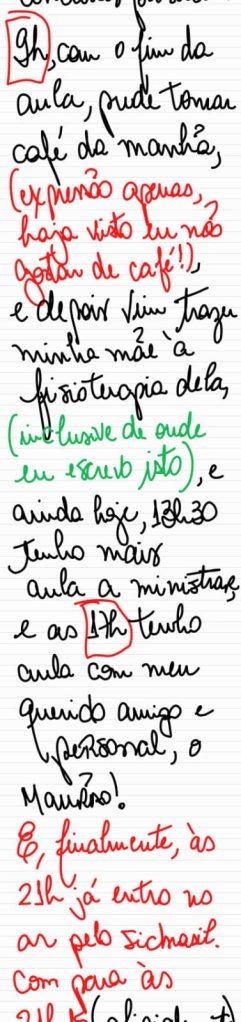 9h, com o fim da
aula, pude tomar
café da manhã,
(expressão apenas,
haja visto eu não
gostar de café!),
e depois vim trazer
minha mãe à
fisioterapia dela,
(inclusive de onde
eu escrevo isto), e
ainda hoje, 13h30
tenho mais
aula a ministrar,
e as 17h tenho
aula com meu
querido amigo e
personal, o
Mauro!
E, finalmente, às
21h já entro no
ar pelo
com para às